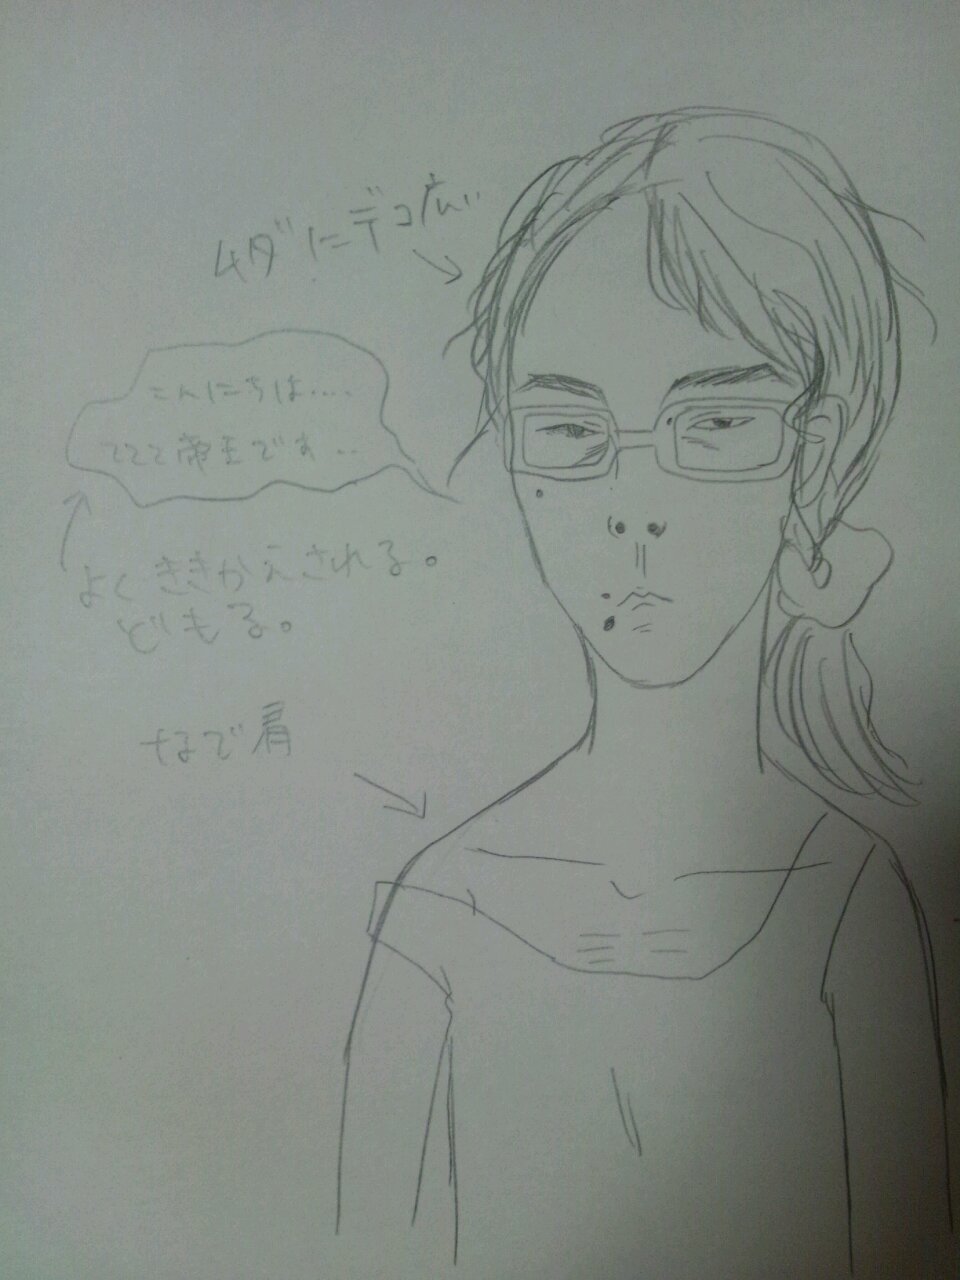 ムダにデコ広い
こんにちは....
ててて帝王です..
よくききかえされる。
どもる。
なで肩